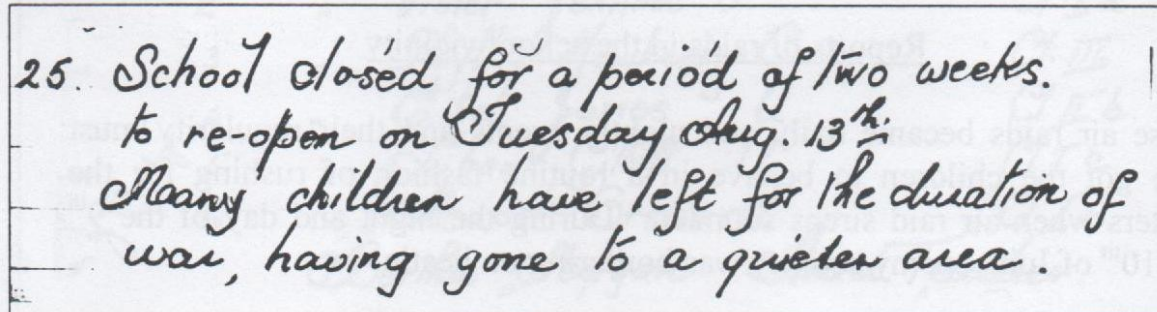 25. School closed for a period of two weeks.
to re-open on Tuesday Aug. 13th.
Many children have left for the duration of
war, having gone to a quieter area.